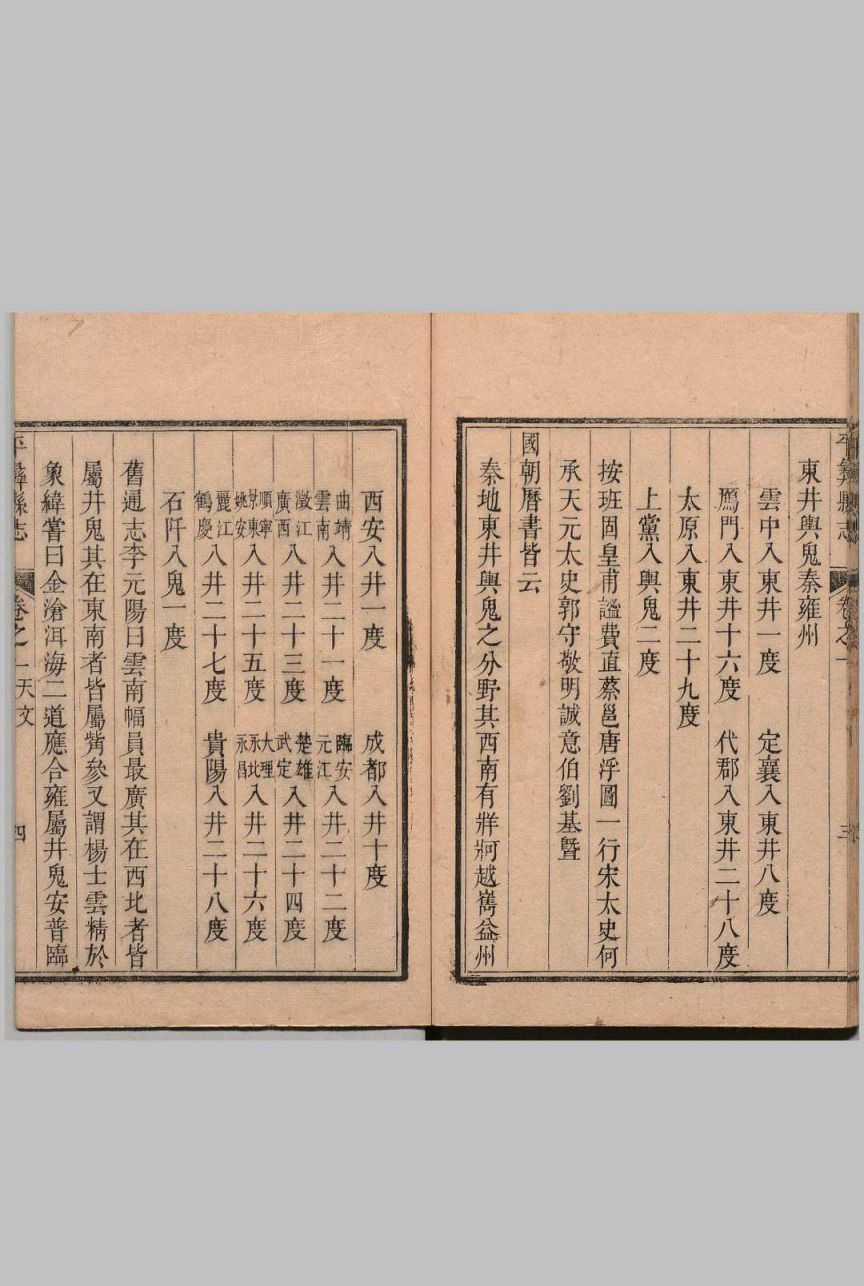 平彝縣志
卷之一
三
東井輿鬼秦雍州
雲中入東井一度 定襄入東井八度
鴈門入東井十六度 代郡入東井二十八度
太原入東井二十九度
上黨入輿鬼二度
按班固皇甫謐費直蔡邕唐浮圖一行宋太史何
承天元太史郭守敬明誠意伯劉基曁
國朝曆書皆云
秦地東井輿鬼之分野其西南有牂牁越嶲益州
西安入井一度 成都入井十度
曲靖雲南入井二十一度 臨安元江入井二十二度
澂江廣西入井二十三度 楚雄武定入井二十四度
順寧景東姚安入井二十五度 大理永北永昌入井二十六度
麗江鶴慶入井二十七度 貴陽入井二十八度
石阡入鬼一度
舊通志李元陽曰雲南幅員最廣其在西北者皆
屬井鬼其在東南者皆屬觜參又謂楊士雲精於
象緯嘗曰金滄洱海二道應合雍屬井鬼安普臨
平彝縣志
卷之一天文
四